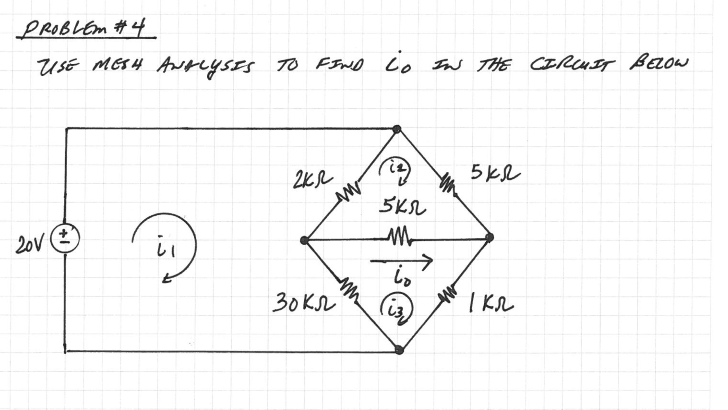 PROBLEM #4
USE MESH ANALYSIS TO FIND i₀ IN THE CIRCUIT BELOW
2KΩ
i₂
5KΩ
5KΩ
20V
+
-
i₁
i₀
30KΩ
i₃
1KΩ